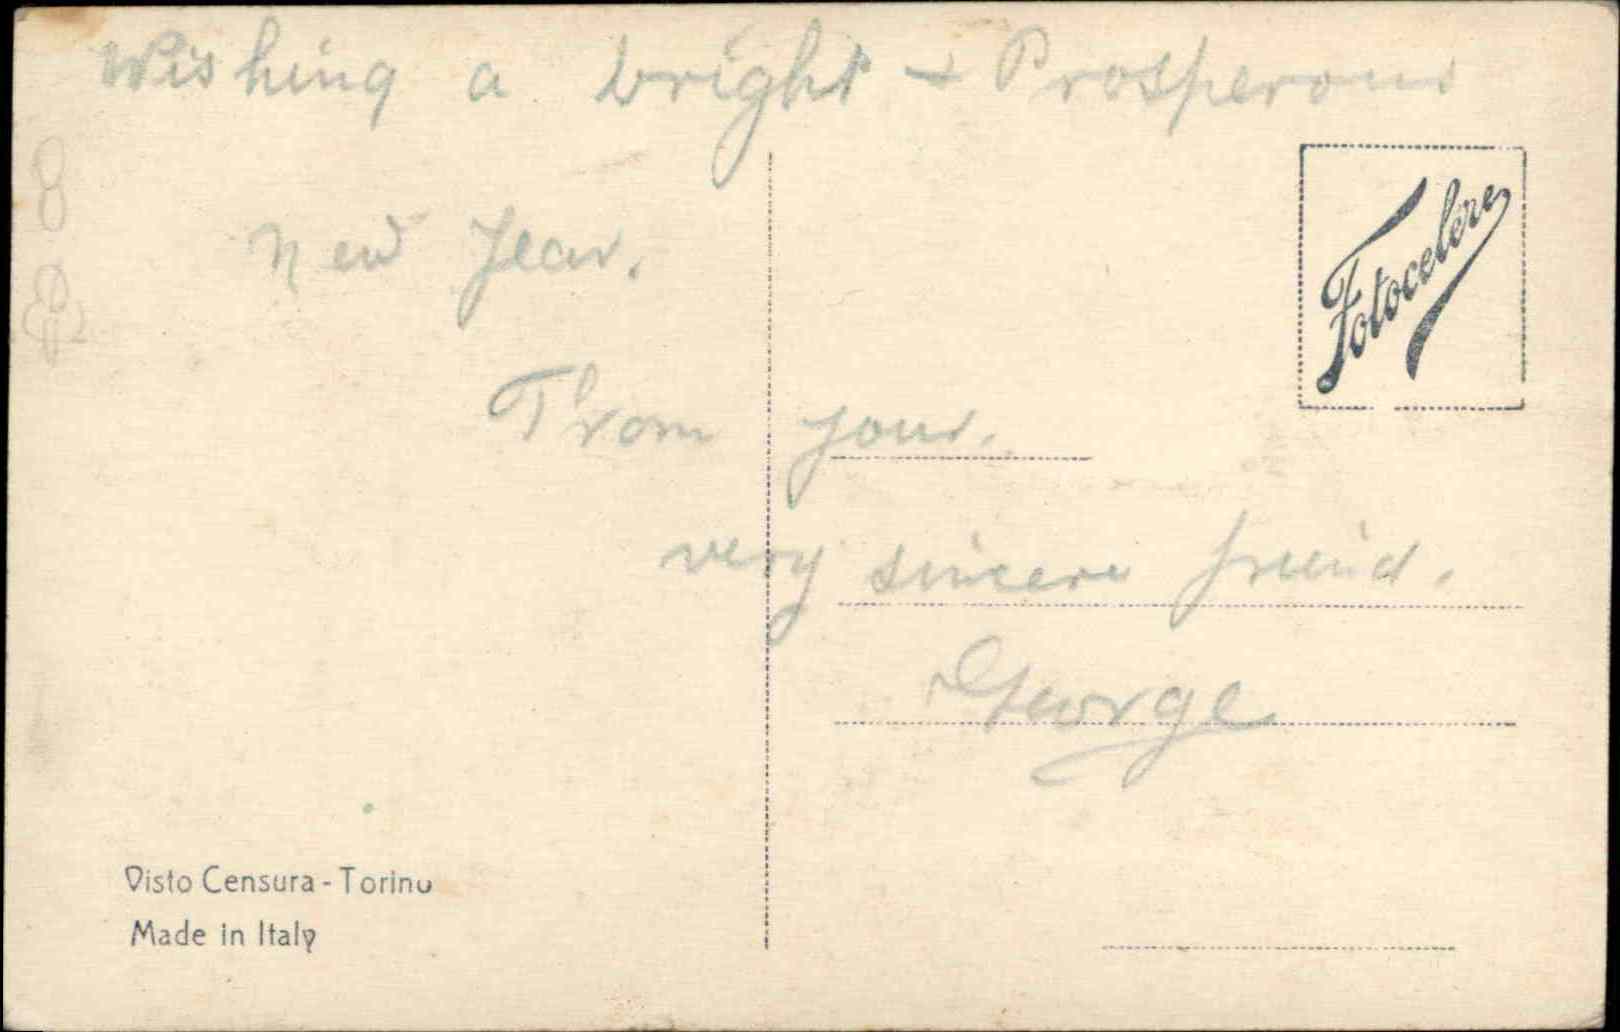 Wishing a bright + Prosperous
New Year.
From your.
very sincere friend.
George
Fotocelere
Visto Censura - Torino
Made in Italy